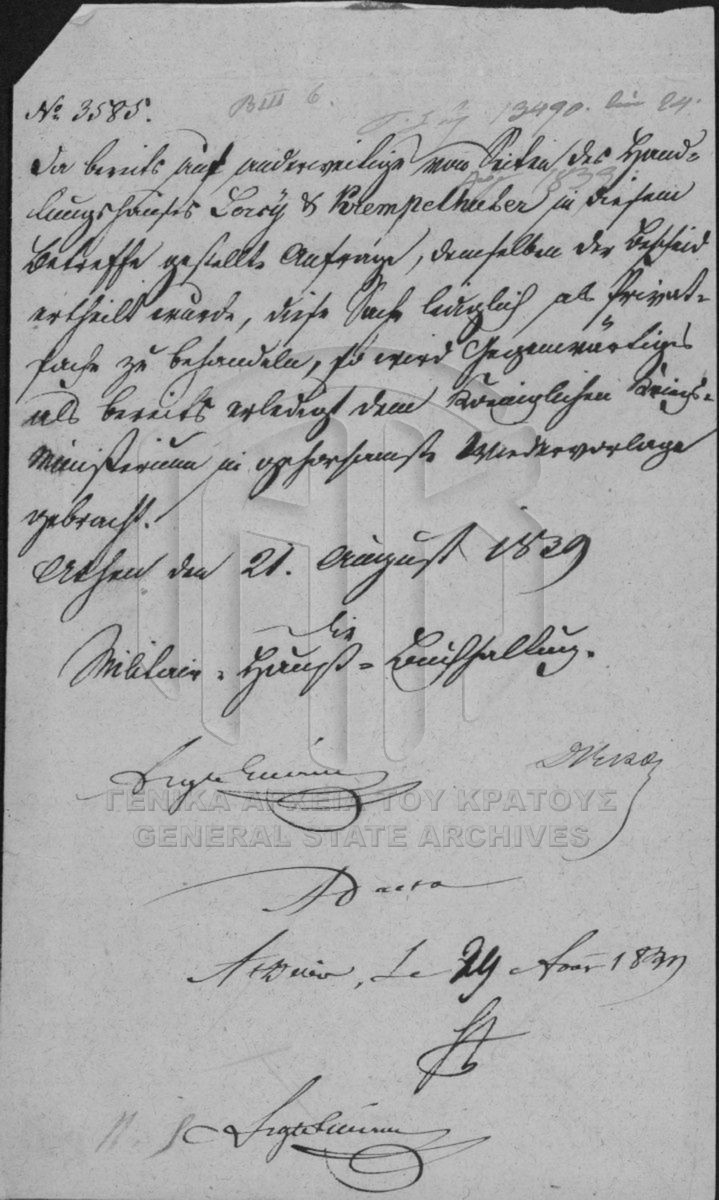 No 3585.
BIII 6.
13490.
Da bereits auf anderweitige von Seiten des Hand=
lungshauses & Krempelhuber in diesem
Betreffe gestellte Anfrage, demselben der Bescheid
ertheilt wurde, diese Sache lediglich als Privat=
sache zu behandeln, so wird Gegenwärtiges
als bereits erledigt dem Königlichen Kriegs=
Ministerium in gehorsamste Wiedervorlage
gebracht.
Athen den 21. August 1839
Die
Militair=Haupt=Buchhaltung.
ΓΕΝΙΚΑ ΑΡΧΕΙΑ ΤΟΥ ΚΡΑΤΟΥΣ
GENERAL STATE ARCHIVES
ad acta
Athen, le 29 Août 1839